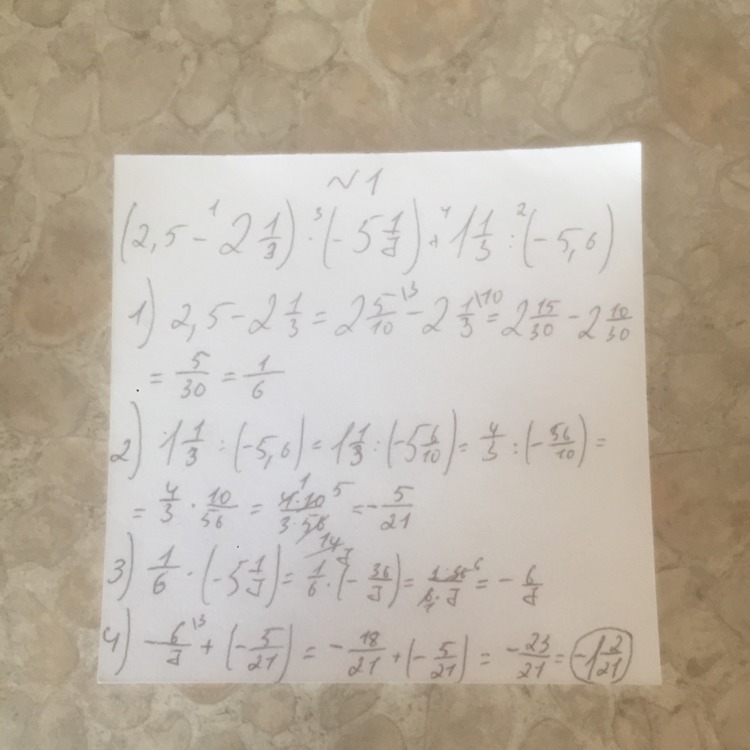 №1
(2,5 - 2 1/3) · (-5 1/7) + 1 1/3 : (-5,6)
1) 2,5 - 2 1/3 = 2 5/10 \3 - 2 1/3 \10 = 2 15/30 - 2 10/30
= 5/30 = 1/6
2) 1 1/3 : (-5,6) = 1 1/3 : (-5 6/10) = 4/3 : (-56/10) =
= 4/3 · 10/56 = 4·10/3·56 = -5/21
3) 1/6 · (-5 1/7) = 1/6 · (-36/7) = 1·36/6·7 = -6/7
4) -6/7 \3 + (-5/21) = -18/21 + (-5/21) = -23/21 = -1 2/21